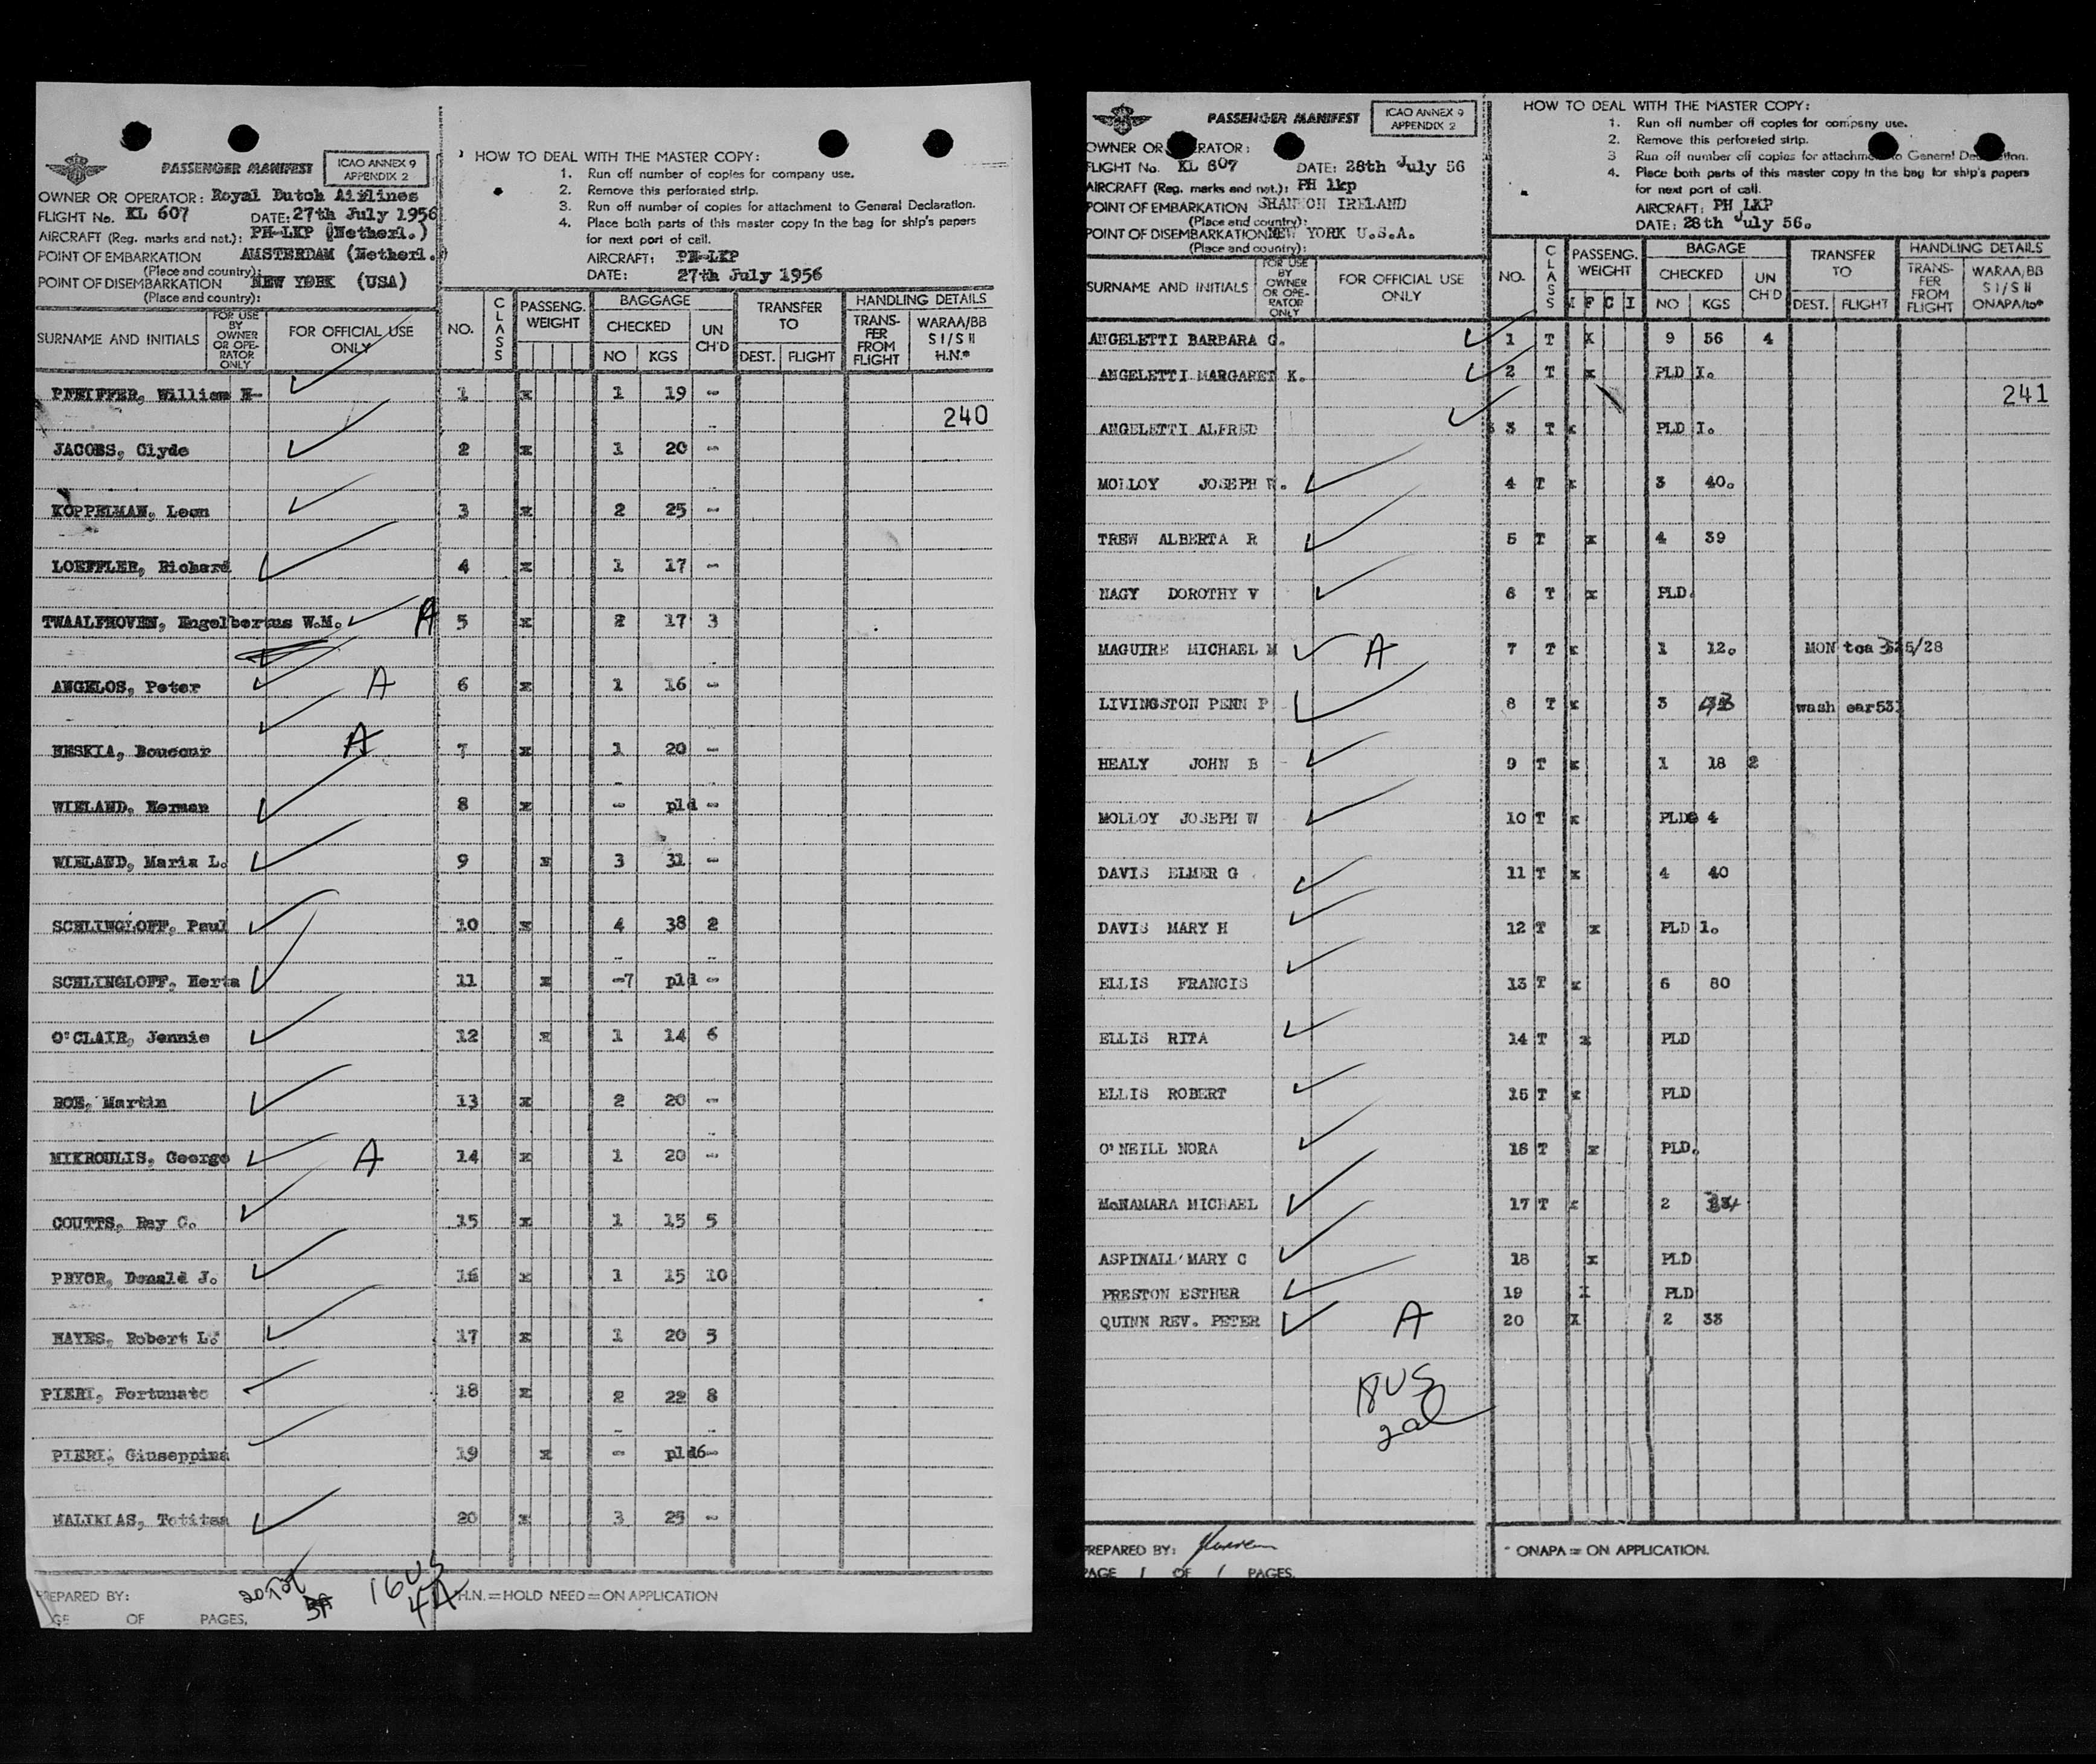 PASSENGER MANIFEST
ICAO ANNEX 9
APPENDIX 2
OWNER OR OPERATOR: Royal Dutch Airlines
FLIGHT No. KL 607 DATE: 27th July 1956
AIRCRAFT (Reg. marks and nat.): PH-LKP (Netherl.)
POINT OF EMBARKATION AMSTERDAM (Netherl.)
(Place and country):
POINT OF DISEMBARKATION NEW YORK (USA)
(Place and country):
HOW TO DEAL WITH THE MASTER COPY:
1. Run off number of copies for company use.
2. Remove this perforated strip.
3. Run off number of copies for attachment to General Declaration.
4. Place both parts of this master copy in the bag for ship's papers
for next port of call.
AIRCRAFT: PH-LKP
DATE: 27th July 1956
SURNAME AND INITIALS FOR USE BY OWNER OR OPE- RATOR ONLY FOR OFFICIAL USE ONLY NO. CLASS PASSENG. WEIGHT BAGGAGE CHECKED NO KGS UN CH'D TRANSFER TO DEST. FLIGHT HANDLING DETAILS TRANS- FER FROM FLIGHT WARAA/BB S I/S II H.N.*
PFEIFFER, William H- 1 x 1 19 -
240
JACOBS, Clyde 2 x 1 20 -
KOPPELMAN, Leon 3 x 2 25 -
LOEFFLER, Richard 4 x 1 17 -
TWAALFHOVEN, Engelbertus W.M. A 5 x 2 17 3
ANGELOS, Peter A 6 x 1 16 -
HESKIA, Boucour A 7 x 1 20 -
WIELAND, Herman 8 x - pld -
WIELAND, Maria L. 9 x 3 31 -
SCHLINGLOFF, Paul 10 x 4 38 2
SCHLINGLOFF, Herta 11 x -7 pld -
O'CLAIR, Jennie 12 x 1 14 6
BOE, Martin 13 x 2 20 -
MIKROULIS, George A 14 x 1 20 -
COUTTS, Ray C. 15 x 1 15 5
PRYOR, Donald J. 16 x 1 15 10
HAYES, Robert L. 17 x 1 20 5
PIERI, Fortunato 18 x 2 22 8
PIERI, Giuseppina 19 x - pld 6-
HALIKIAS, Totitsa 20 x 3 25 -
20 Tot 16 US
4A
PREPARED BY:
OF PAGES.
H.N. = HOLD NEED = ON APPLICATION
PASSENGER MANIFEST
ICAO ANNEX 9
APPENDIX 2
OWNER OR OPERATOR:
FLIGHT No. KL 607 DATE: 28th July 56
AIRCRAFT (Reg. marks and nat.): PH lkp
POINT OF EMBARKATION SHANNON IRELAND
(Place and country):
POINT OF DISEMBARKATION NEW YORK U.S.A.
(Place and country):
HOW TO DEAL WITH THE MASTER COPY:
1. Run off number off copies for company use.
2. Remove this perforated strip.
3 Run off number off copies for attachment to General Declaration.
4. Place both parts of this master copy in the bag for ship's papers
for next port of call.
AIRCRAFT: PH LKP
DATE: 28th July 56.
SURNAME AND INITIALS FOR USE BY OWNER OR OPE- RATOR ONLY FOR OFFICIAL USE ONLY NO. CLASS PASSENG. WEIGHT M F C I BAGAGE CHECKED NO KGS UN CH'D TRANSFER TO DEST. FLIGHT HANDLING DETAILS TRANS- FER FROM FLIGHT WARAA/BB S I/S II ONAPA/to*
ANGELETTI BARBARA G. 1 T X 9 56 4
ANGELETTI MARGARET K. 2 T x PLD 1.
241
ANGELETTI ALFRED 3 T x PLD 1.
MOLLOY JOSEPH W. 4 T x 3 40.
TREW ALBERTA R 5 T x 4 39
NAGY DOROTHY V 6 T x PLD.
MAGUIRE MICHAEL M A 7 T x 1 12. MON tca 5/28
LIVINGSTON PENN P 8 T x 3 wash ear531
HEALY JOHN B 9 T x 1 18 2
MOLLOY JOSEPH W 10 T x PLD 4
DAVIS ELMER G 11 T x 4 40
DAVIS MARY H 12 T x PLD 1.
ELLIS FRANCIS 13 T x 6 80
ELLIS RITA 14 T x PLD
ELLIS ROBERT 15 T x PLD
O'NEILL NORA 16 T x PLD.
McNAMARA MICHAEL 17 T x 2
ASPINALL MARY C 18 x PLD
PRESTON ESTHER 19 X PLD
QUINN REV. PETER A 20 X 2 33
18 US
2al
PREPARED BY:
PAGE 1 OF 1 PAGES.
* ONAPA = ON APPLICATION.